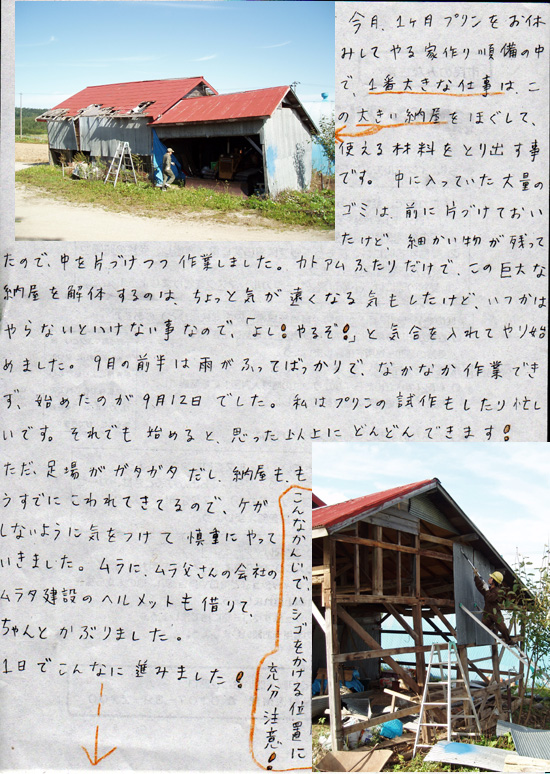 今月、1ヶ月プリンをお休
みしてやる家作り順備の中
で、1番大きな仕事は、こ
の大きい納屋をほぐして、
使える材料をとり出す事
です。中に入っていた大量の
ゴミは、前に片づけておい
たけど、細かい物が残って
たので、中を片づけつつ作業しました。カトアムふたりだけで、この巨大な
納屋を解体するのは、ちょっと気が遠くなる気もしたけど、いつかは
やらないといけない事なので、「よし!やるぞ!」と気合を入れてやり始
めました。9月の前半は雨がふってばっかりで、なかなか作業でき
ず、始めたのが9月12日でした。私はプリンの試作もしたり忙し
いです。それでも始めると、思った以上にどんどんできます!
ただ、足場がガタガタだし、納屋も、も
うすでにこわれてきてるので、ケガ
しないように気をつけて慎重にやって
いきました。ムラに、ムラ父さんの会社の
ムラタ建設のヘルメットも借りて、
ちゃんとかぶりました。
1日でこんなに進みました!
こんなかんじでハシゴをかける位置に
充分注意!